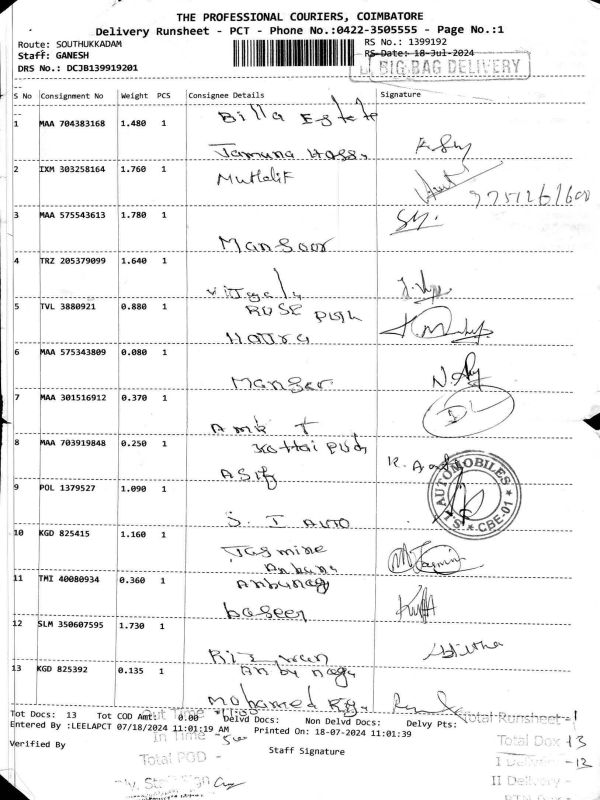 THE PROFESSIONAL COURIERS, COIMBATORE
Delivery Runsheet - PCT - Phone No.:0422-3505555 - Page No.:1
Route: SOUTHUKKADAM
RS No.: 1399192
Staff: GANESH
RS Date: 18-Jul-2024
DRS No.: DCJB139919201
BIG BAG DELIVERY
S No Consignment No Weight PCS Consignee Details Signature
Billa Estete
1 MAA 704383168 1.480 1
Jamuna
2 IXM 303258164 1.760 1
Muthalif
3 MAA 575543613 1.780 1
Mansoor
4 TRZ 205379099 1.640 1
5 TVL 3880921 0.880 1
ROSE
6 MAA 575343809 0.080 1
Manser
7 MAA 301516912 0.370 1
DL
AMK T
8 MAA 703919848 0.250 1
Asif
AUTOMOBILES
CBE-01
9 POL 1379527 1.090 1
S. I AUTO
10 KGD 825415 1.160 1
Jasmine
11 TMI 40080934 0.360 1
Anbunagy
baseer
12 SLM 350607595 1.730 1
Rij wan
13 KGD 825392 0.135 1
Anbu nagy
Mohamed
Tot Docs: 13 Tot COD Amt: 0.00 Delvd Docs: Non Delvd Docs: Delvy Pts:
Out Time
Total Runsheet - 1
Entered By :LEELAPCT 07/18/2024 11:01:19 AM Printed On: 18-07-2024 11:01:39
In Time -
Total Dox 13
Verified By
Staff Signature
Total POD -
I Delivery - 12
II Delivery -